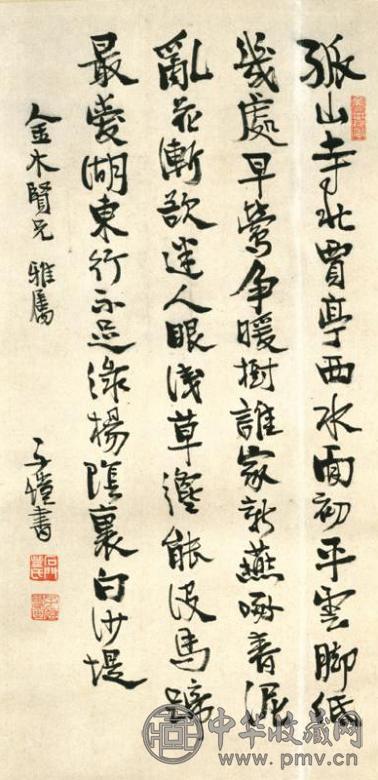 孤山寺北賈亭西水面初平雲脚低
幾處早鶯爭暖樹誰家新燕啄春泥
亂花漸欲迷人眼淺草纔能沒馬蹄
最愛湖東行不足綠楊陰裏白沙堤
金木賢兄 雅屬
子愷書
中华收藏网
www.pmv.cn